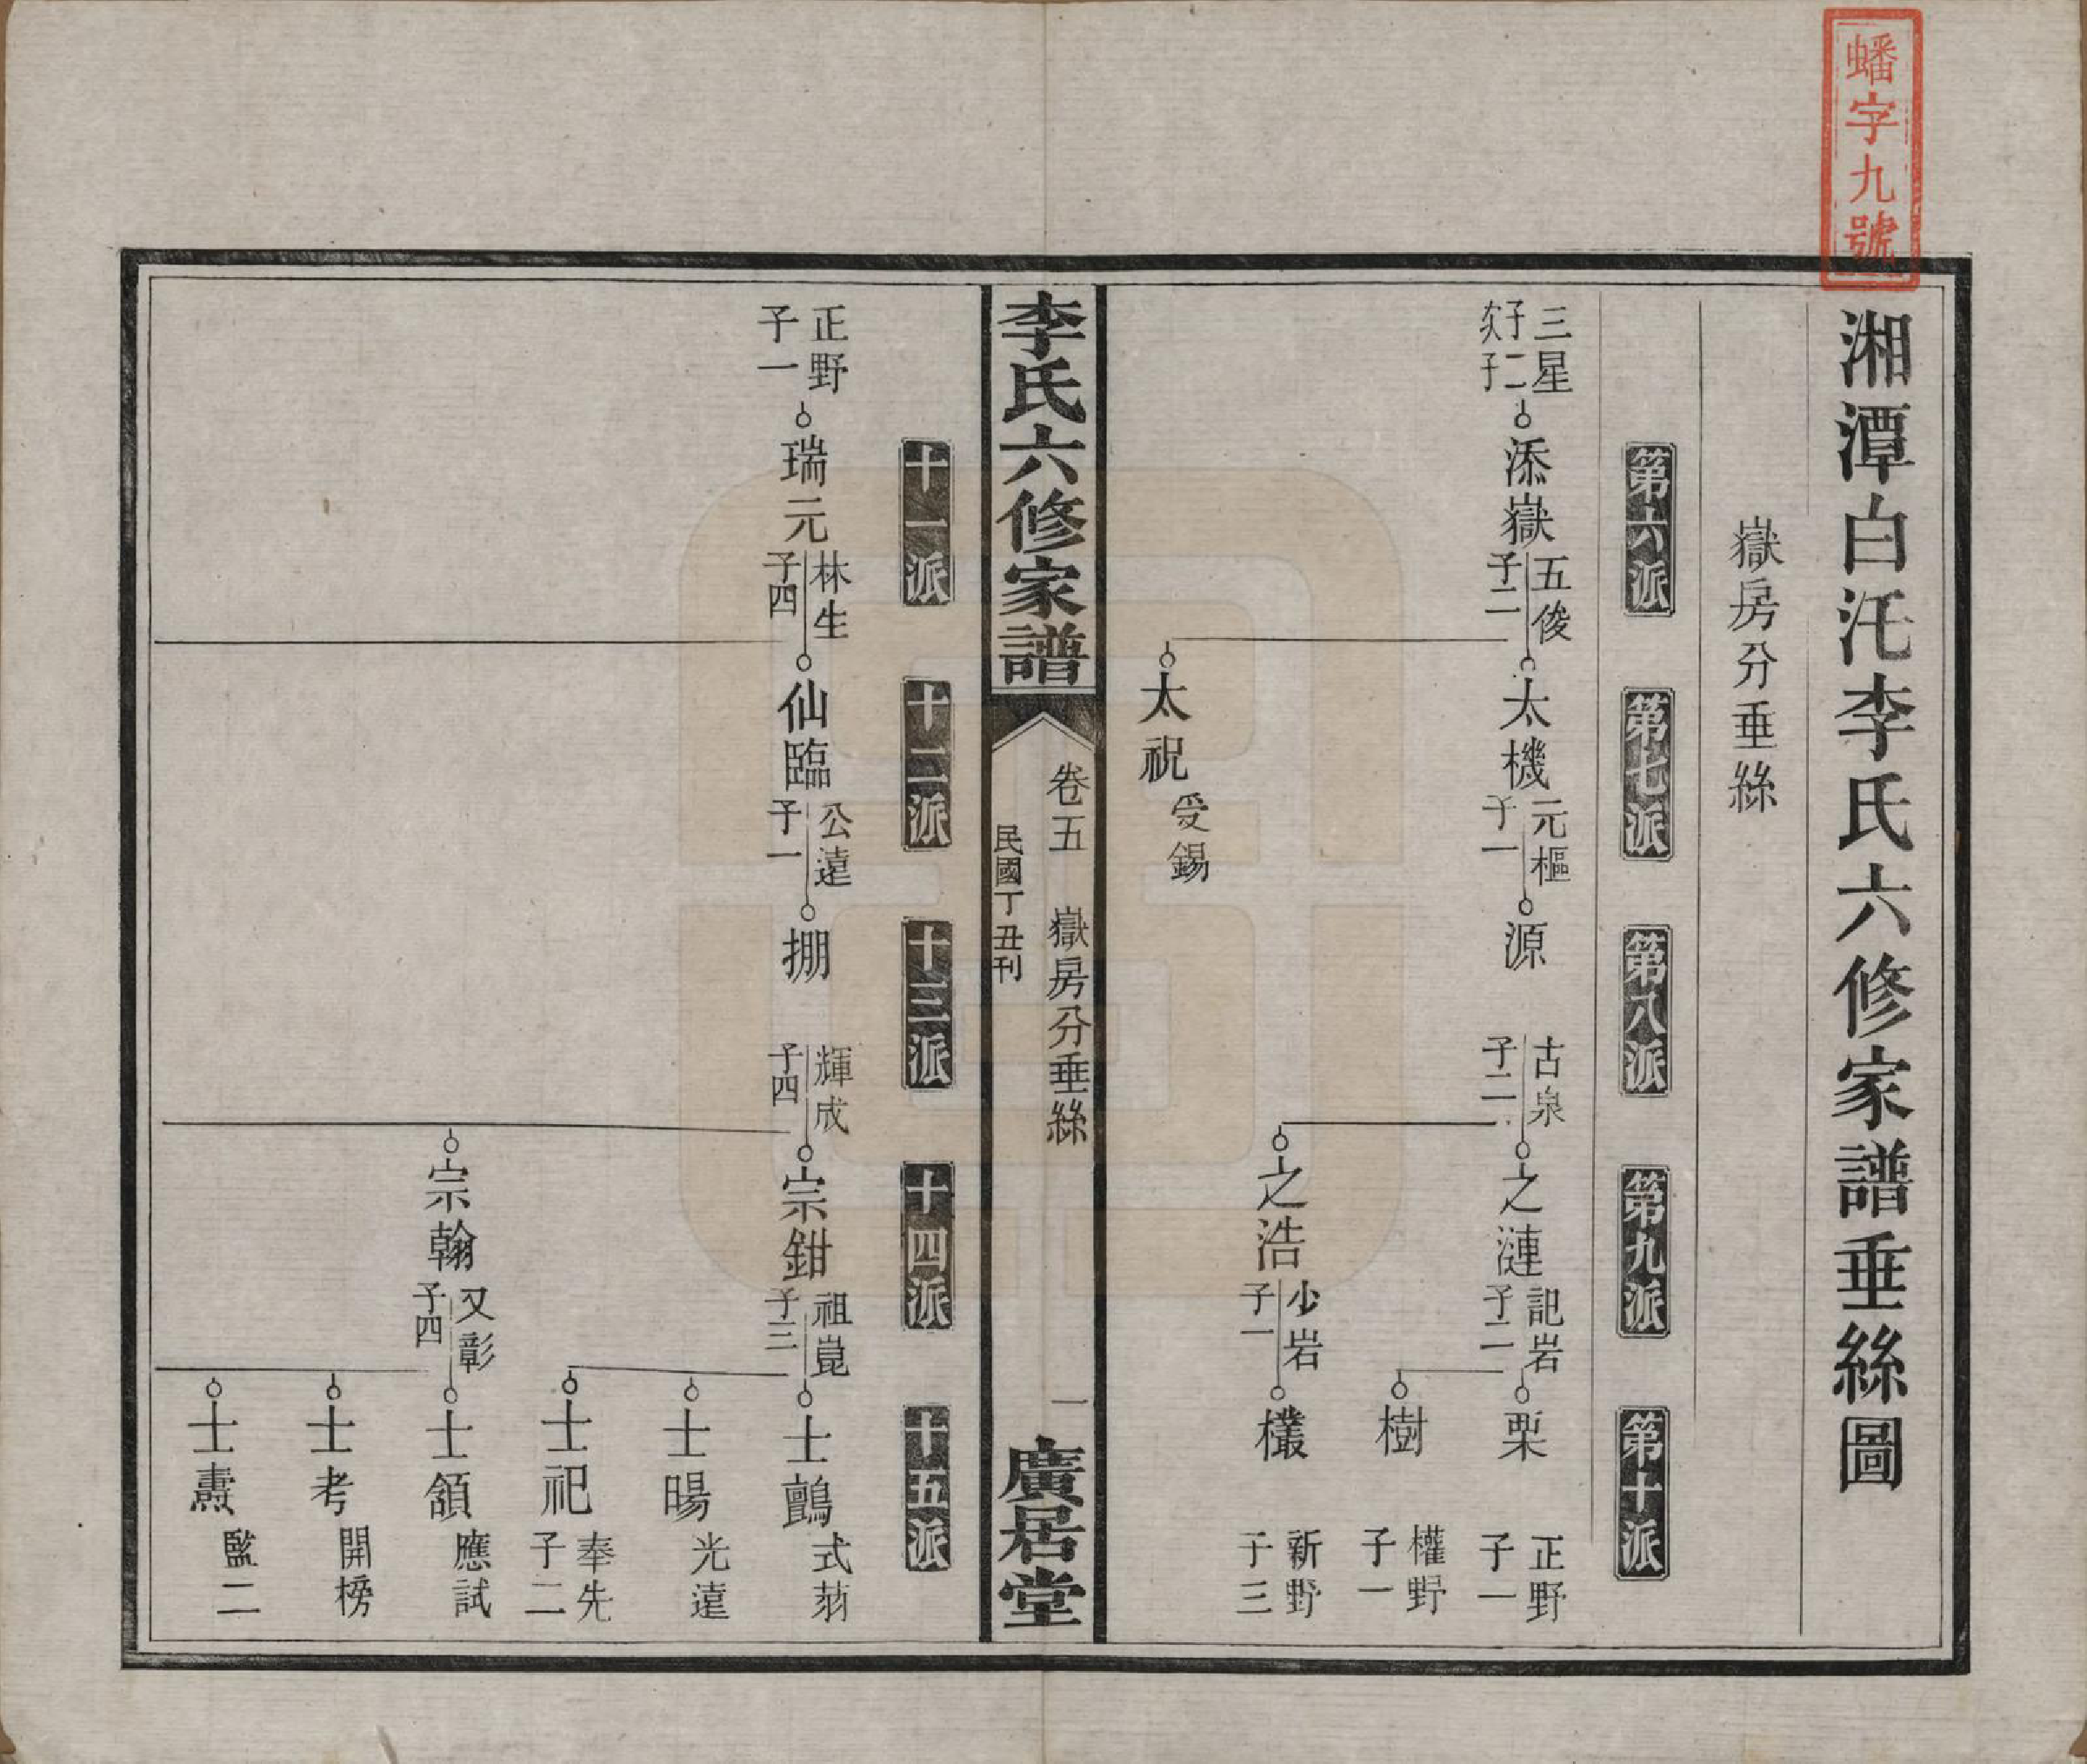 蟠字九號
湘潭白汑李氏六修家譜垂絲圖
嶽房分垂絲
第六派
第七派
第八派
第九派
第十派
三星
子二
次子
添嶽
五俊
子二
太機
元樞
子一
源
古泉
子二
之漣
記岩
子二
栗
正野
子一
樹
權野
子一
之浩
少岩
子一
欉
新野
子三
太祝
受錫
李氏六修家譜
卷五
嶽房分垂絲
一
民國丁丑刊
廣居堂
十一派
十二派
十三派
十四派
十五派
正野
子一
瑞元
林生
子四
仙臨
公遠
子一
掤
輝成
子四
宗鉗
祖崑
子三
士鷬
式蒻
士暘
光遠
士祀
奉先
子二
宗翰
又彰
子四
士頜
應試
士考
開榜
士燾
監二